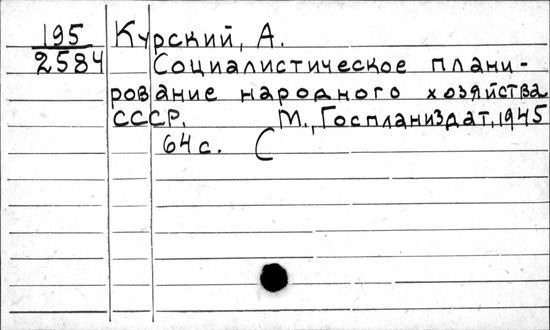 195 Курский, А.
2584 Социалистическое плани-
рование народного хозяйства
СССР. М., Госпланиздат, 1945
64 с.